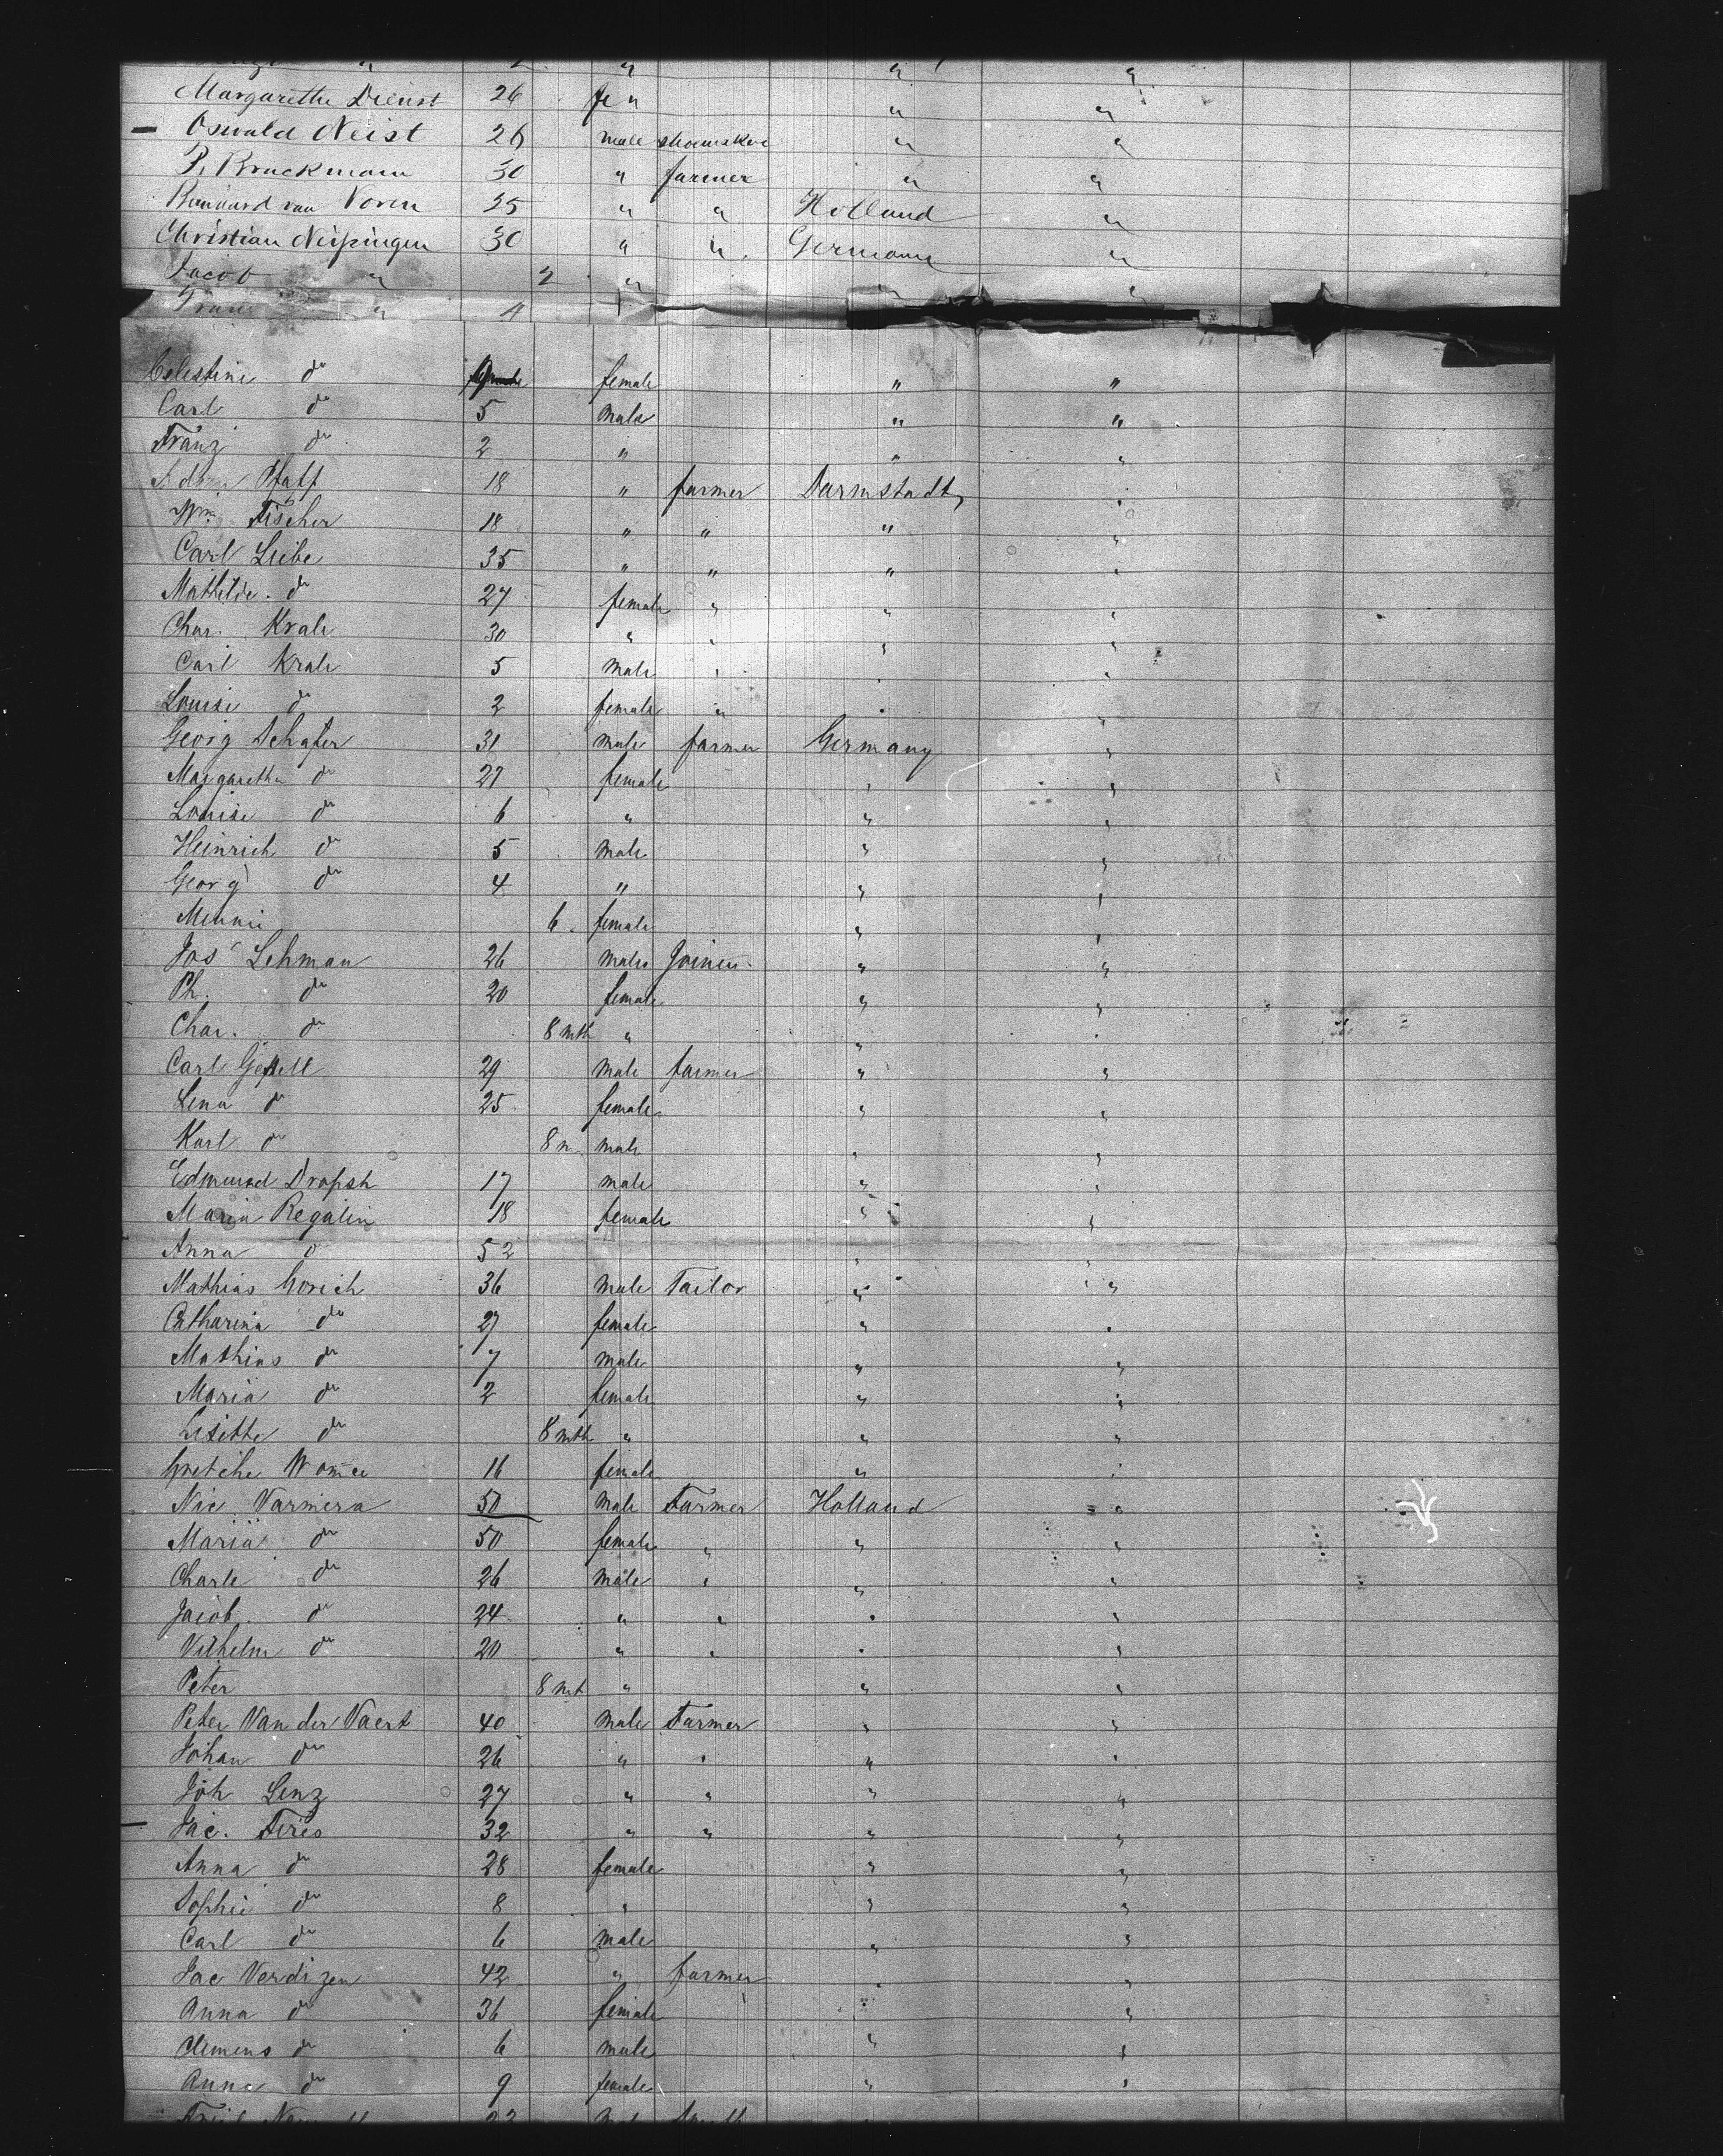 Margarethe Dienst 26 fe " " "
Oswald Neist 26 male shoemaker " "
P. Bruckmann 30 " farmer " "
van Voren 35 " " Holland "
Christian 30 " " Germany "
Jacob " 2 " " "
" 4
Celestine do female " "
Carl do 5 male " "
Franz do 2 " " "
Pfaff 18 " farmer Darmstadt "
Wm Fischer 18 " " " "
Carl Leibe 35 " " " "
Mathilde do 27 female " " "
Char. Krale 30 " " " "
Carl Krale 5 male " " "
Louise do 2 female " " "
Georg Schafer 31 male farmer Germany "
Margaretha do 27 female " "
Louise do 6 " " "
Heinrich do 5 male " "
Georg do 4 " " "
Minnie 6 female " "
Jos Lehman 26 male Joiner " "
Ph. do 20 female " "
Char. do 8 mth " " "
Carl 29 male farmer " "
Lena do 25 female " "
Karl do 8 m male " "
Edmund Dropsh 17 male " "
Maria Regalin 18 female " "
Anna do 52 " "
Mathias Gorich 36 male Tailor " "
Catharina do 27 female " "
Mathias do 7 male " "
Maria do 2 female " "
Lisette do 8 mth " " "
16 female " "
Nic Varmera 50 male Farmer Holland "
Maria do 50 female " " "
Charle do 26 male " " "
Jacob do 24 " " " "
Vilhelm do 20 " " " "
Peter 8 mt " " "
Peter Van der Vaert 40 male Farmer " "
Johan do 26 " " " "
Joh Lenz 27 " " " "
Jac. Tires 32 " " " "
Anna do 28 female " "
Sophie do 8 " " "
Carl do 6 male " "
Jac Verdizen 42 " farmer " "
Anna do 36 female " "
Clemens do 6 male " "
Anna do 9 female " "